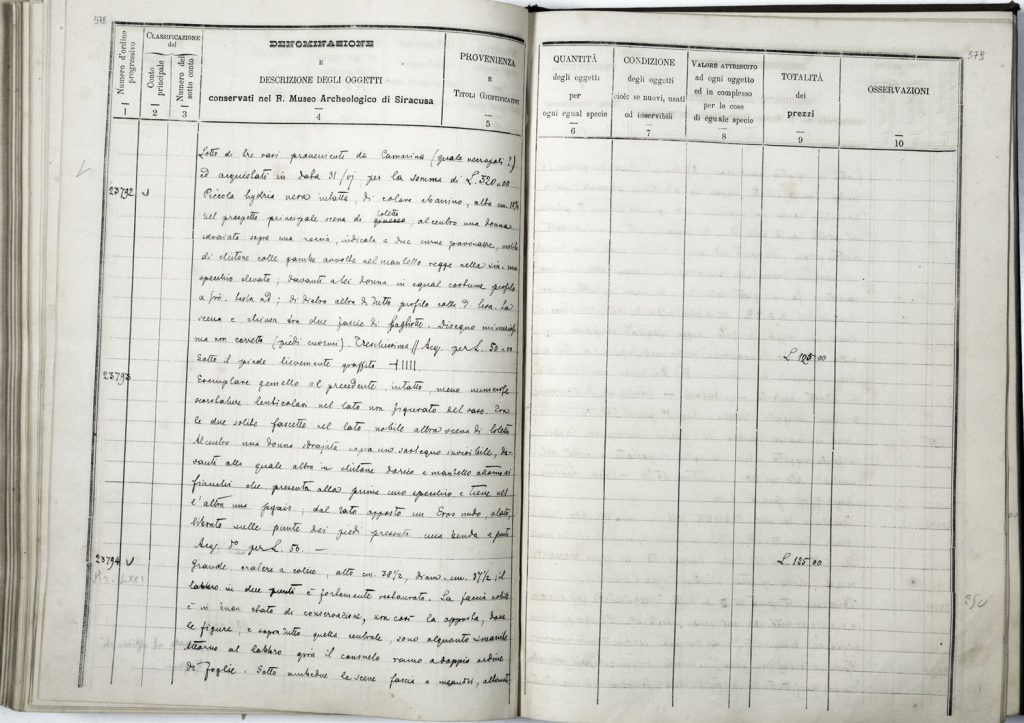 578
Numero d'ordine progressivo
CLASSIFICAZIONE del
Conto principale
Numero del sotto conto
DENOMINAZIONE
E
DESCRIZIONE DEGLI OGGETTI
conservati nel R. Museo Archeologico di Siracusa
PROVENIENZA
E
TITOLI GIUSTIFICATIVI
1
2
3
4
5
Lotto di tre vasi provenienti da Camarina (quale necropoli?)
ed acquistati in data 31/VI per la somma di L. 320.00
23792
Piccola hydria nera intatta, di colore nerissimo, alta cm. 18½
nel prospetto principale scena di toletta; al centro una donna
sdraiata sopra una roccia, indicata a due curve pavonazze,
di chitone colle gambe avvolte nel mantello regge nella sin. uno
specchio elevato; davanti a lei donna in egual costume, profilo
a sin. testa ad; di dietro altra di tutto profilo
scena è chiusa tra due fascie di fogliette. Disegno
ma non corretto (piedi enormi). Freschissima // Acq. per L. 50.00
Sotto il piede lievemente graffito
23793
Esemplare gemello al precedente, intatto, meno numerose
scrostature lenticolari nel lato non figurato del vaso. Tra
le due solite fascette nel lato nobile altra scena di toletta
Al centro una donna sdraiata sopra un sostegno invisibile, da-
vanti alla quale altra in chitone dorico e mantello attorno ai
fianchi che presenta alla prima uno specchio e tiene nell
l'altra una; dal lato opposto un Eros nudo, alato,
librato sulle punte dei piedi presenta una benda a
Acq. per L. 50. —
23794
Grande cratere a colonn, alto cm. 38½, diam. cm. 37½; il
labbro in due punti è fortemente restaurato. La faccia nobile
è in buon stato di conservazione, non così la opposta, dove
le figure, e sopratutto quella centrale, sono alquanto
Attorno al labbro gira il consueto ramo a doppio ordine
di foglie. Sotto ambedue le scene fascia a meandri,
579
QUANTITÀ
degli oggetti
per
ogni egual specie
CONDIZIONE
degli oggetti
cioè: se nuovi, usati
od inservibili
VALORE ATTRIBUITO
ad ogni oggetto
ed in complesso
per le cose
di eguale specie
TOTALITÀ
dei
prezzi
OSSERVAZIONI
6
7
8
9
10
L. 125.00
L. 125.00
250